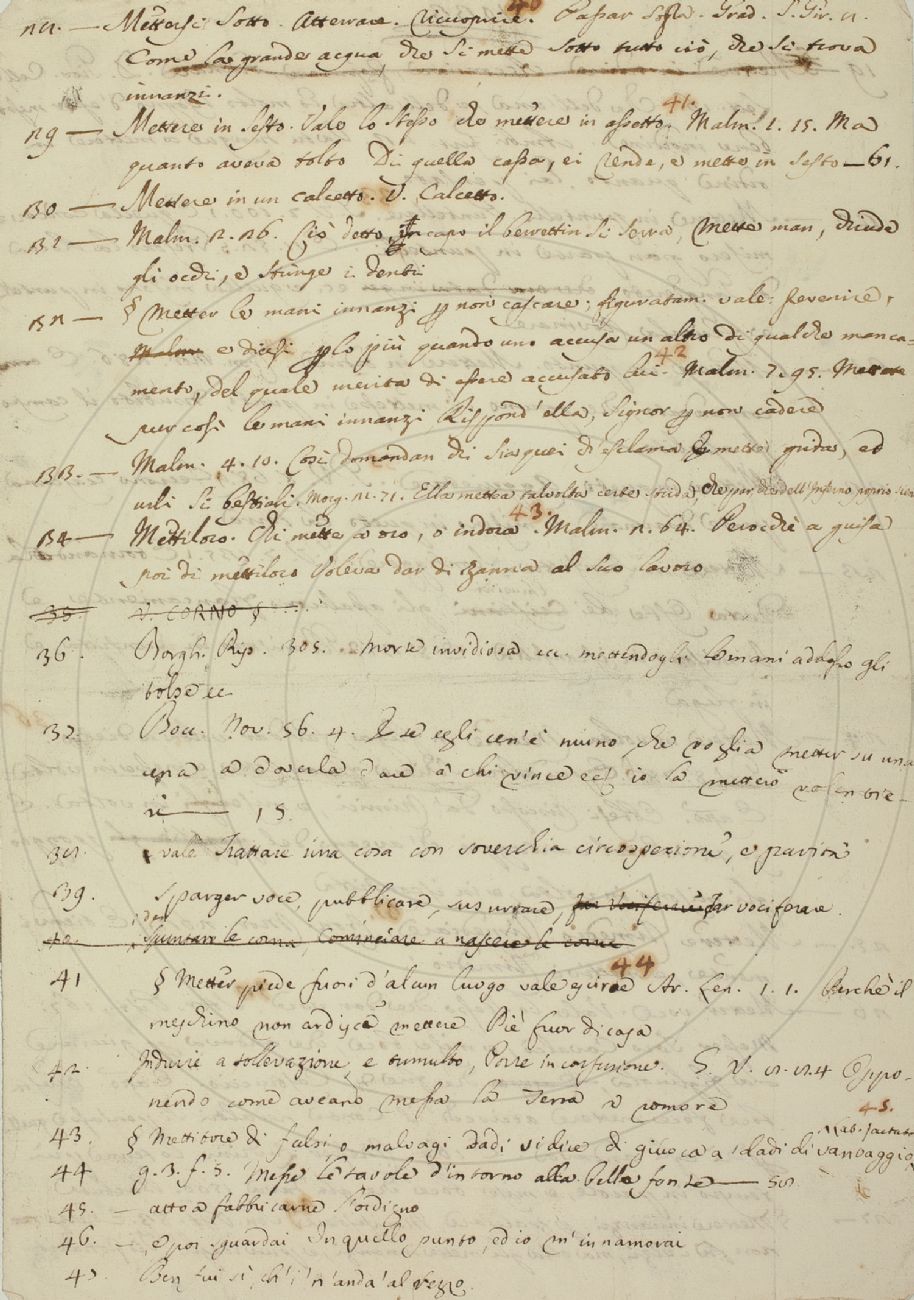 40
Mettersi Sotto. Atterrare. Ricoprire. Passar Sopra. Grad. S. Gir.
Come la grande acqua, che si mette sotto tutto ciò, che si trova
innanzi.
41.
129 — Mettere in sesto. Vale lo stesso che mettere in assetto. Malm. 1. 15. Ma
quanto aveva tolto Di quella cassa, ei rende, e mette in sesto — 61.
130 — Mettere in un calcetto. V. Calcetto.
131 — Malm. 2. 26. Ciò detto, in capo il berrettin si serra, Mette man, chiude
gli occhi, e stringe i denti
132 — § Metter le mani innanzi p non cascare; figuratam. vale: prevenire,
e dicesi p lo più quando uno accusa un altro di qualche manca=
42
mento, del quale merita di essere accusato lui. Malm. 7. 95. Mettete
pur così le mani innanzi Rispond' ella, Signor p non cadere
133. — Malm. 4. 10. Così domandan chi sia quei ch'esclama E mette grida, ed
urli sì bestiali. Morg. 21. 71. Ella mettea talvolta certe strida, Che par che dell'Inferno proprio
43.
134 — Mettiloro. Chi mette a oro, o indora. Malm. 2. 64. Perocchè a guisa
poi di mettiloro Voleva dar di zanna al suo lavoro
35. V. CORNO §
36. Borgh. Rip. 305. Morte invidiosa ec. mettendogli le mani addosso gli
tolse ec
37. Bocc. Nov. 56. 4. E se egli ce n'è niuno, che voglia metter su una
cena a doverla dare a chi vince ec. io la metterò volentie-
ri — 15.
38. vale Trattare una cosa con soverchia circospezione, e
39. Sparger voce, pubblicare, susurrare, far vociferare.
40. Spuntare le corna, Cominciare a nascere le corna
44
41 § Metter piede fuori d'alcun luogo vale uscirne Ar. Len. 1. 1. Perchè il
meschino non ardisce mettere Piè fuor di casa
42. Indurre a sollevazione, e tumulto, Porre in confusione. G. V. 8. 8. 4 Oppo-
nendo come aveano messa la Terra a romore
45.
43. § Mettitore di falsi, o malvagi dadi si dice di giuoca a' dadi di vantaggio,
44 g. 3. f. 5. Messe le tavole d'intorno alla bella fonte —
45. — atto a fabbricarne l'ordigno
46. — e poi guardai In quello punto, ed io m'innamorai
47. Ben fui sì, ch'i' n'anda' al rezzo.